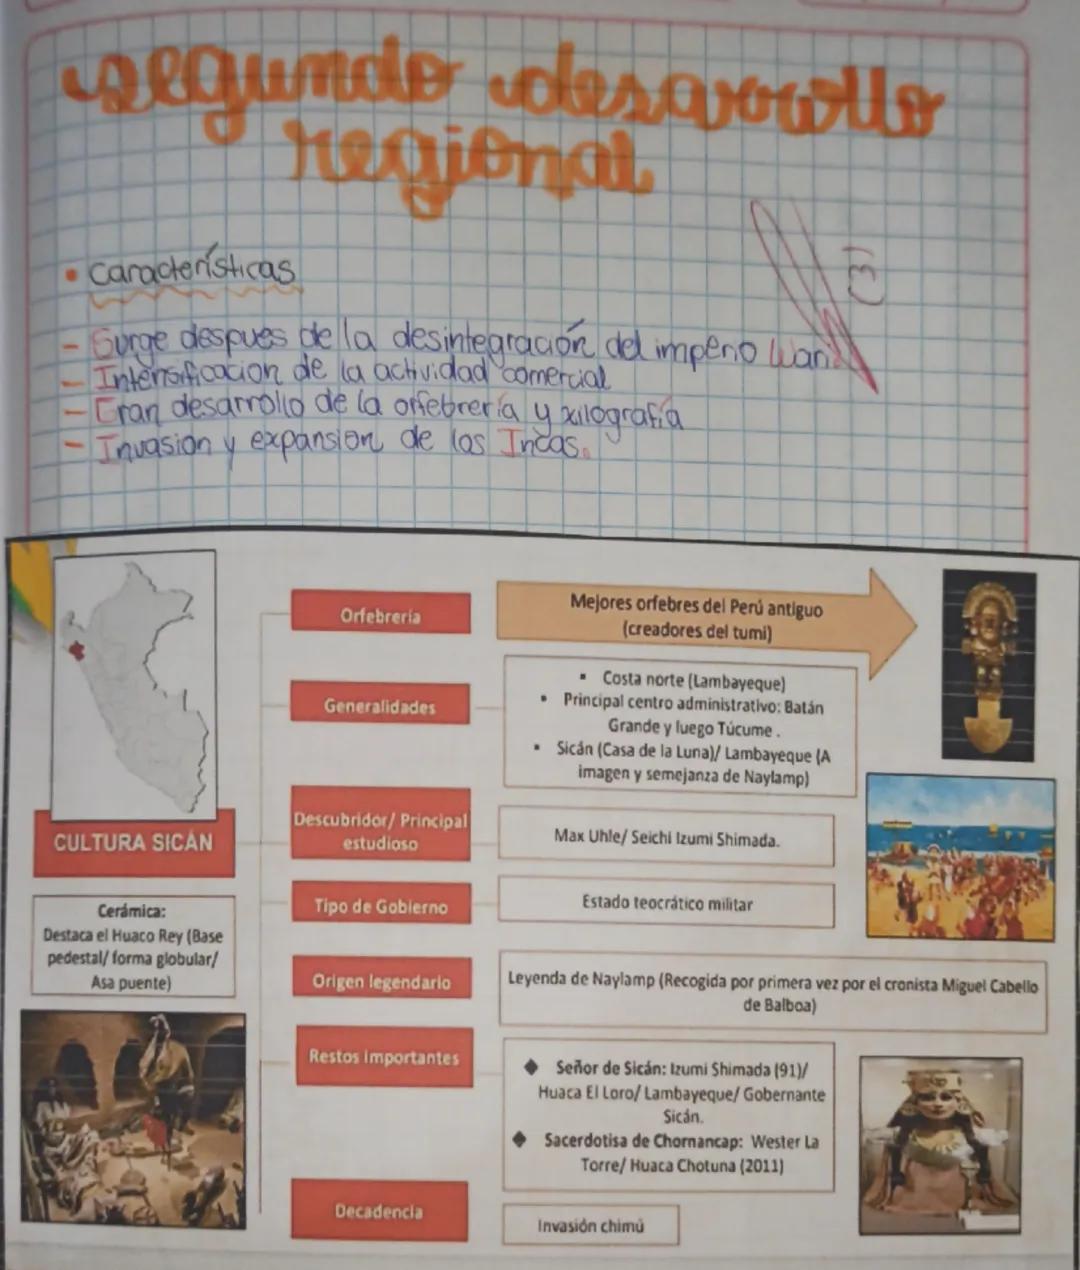 segundo desarrollo
regional
• Características
- Surge despues de la desintegración del imperio Wari.
- Intensificacion de la actividad comercial
- Gran desarrollo de la orfebrería y xilografía
- Invasion y expansion de los Incas.
Orfebrería
Mejores orfebres del Perú antiguo
(creadores del tumi)
Generalidades
▪ Costa norte (Lambayeque)
▪ Principal centro administrativo: Batán
Grande y luego Túcume .
▪ Sicán (Casa de la Luna)/ Lambayeque (A
imagen y semejanza de Naylamp)
CULTURA SICÁN
Descubridor/ Principal
estudioso
Max Uhle/ Seichi Izumi Shimada.
Cerámica:
Destaca el Huaco Rey (Base
pedestal/ forma globular/
Asa puente)
Tipo de Gobierno
Estado teocrático militar
Origen legendario
Leyenda de Naylamp (Recogida por primera vez por el cronista Miguel Cabello
de Balboa)
Restos Importantes
◆ Señor de Sicán: Izumi Shimada (91)/
Huaca El Loro/ Lambayeque/ Gobernante
Sicán.
◆ Sacerdotisa de Chornancap: Wester La
Torre/ Huaca Chotuna (2011)
Decadencia
Invasión chimú